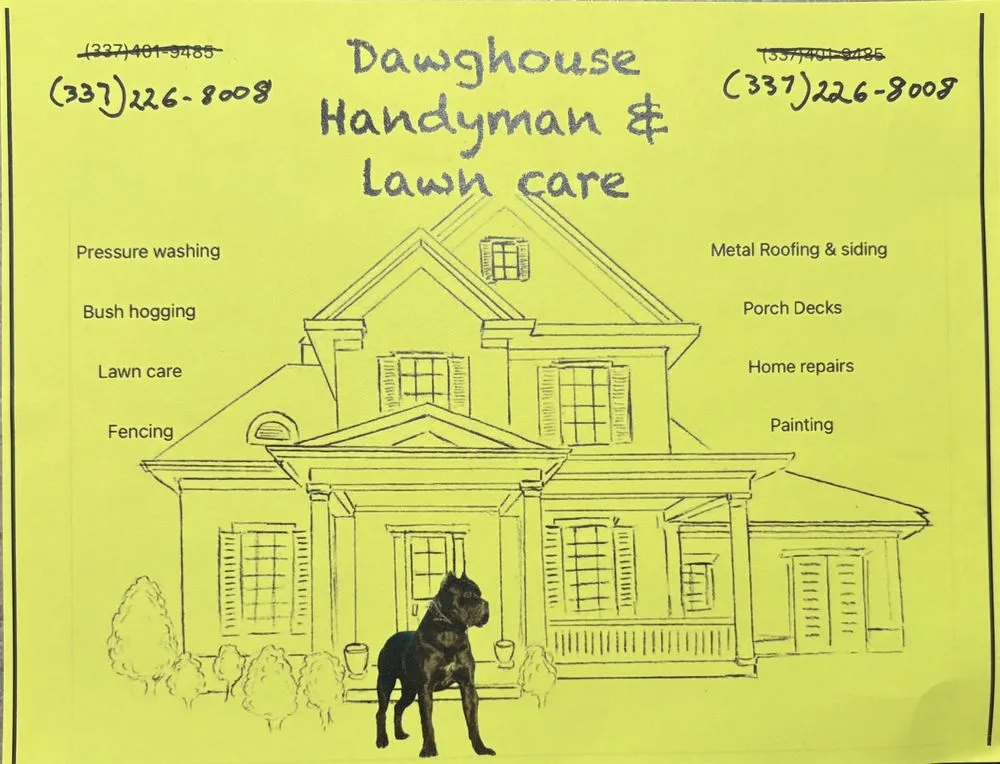 (337)401-9485
(337)226-8008
Dawghouse
Handyman &
Lawn care
(337)401-9485
(337)226-8008
Pressure washing
Bush hogging
Lawn care
Fencing
Metal Roofing & siding
Porch Decks
Home repairs
Painting